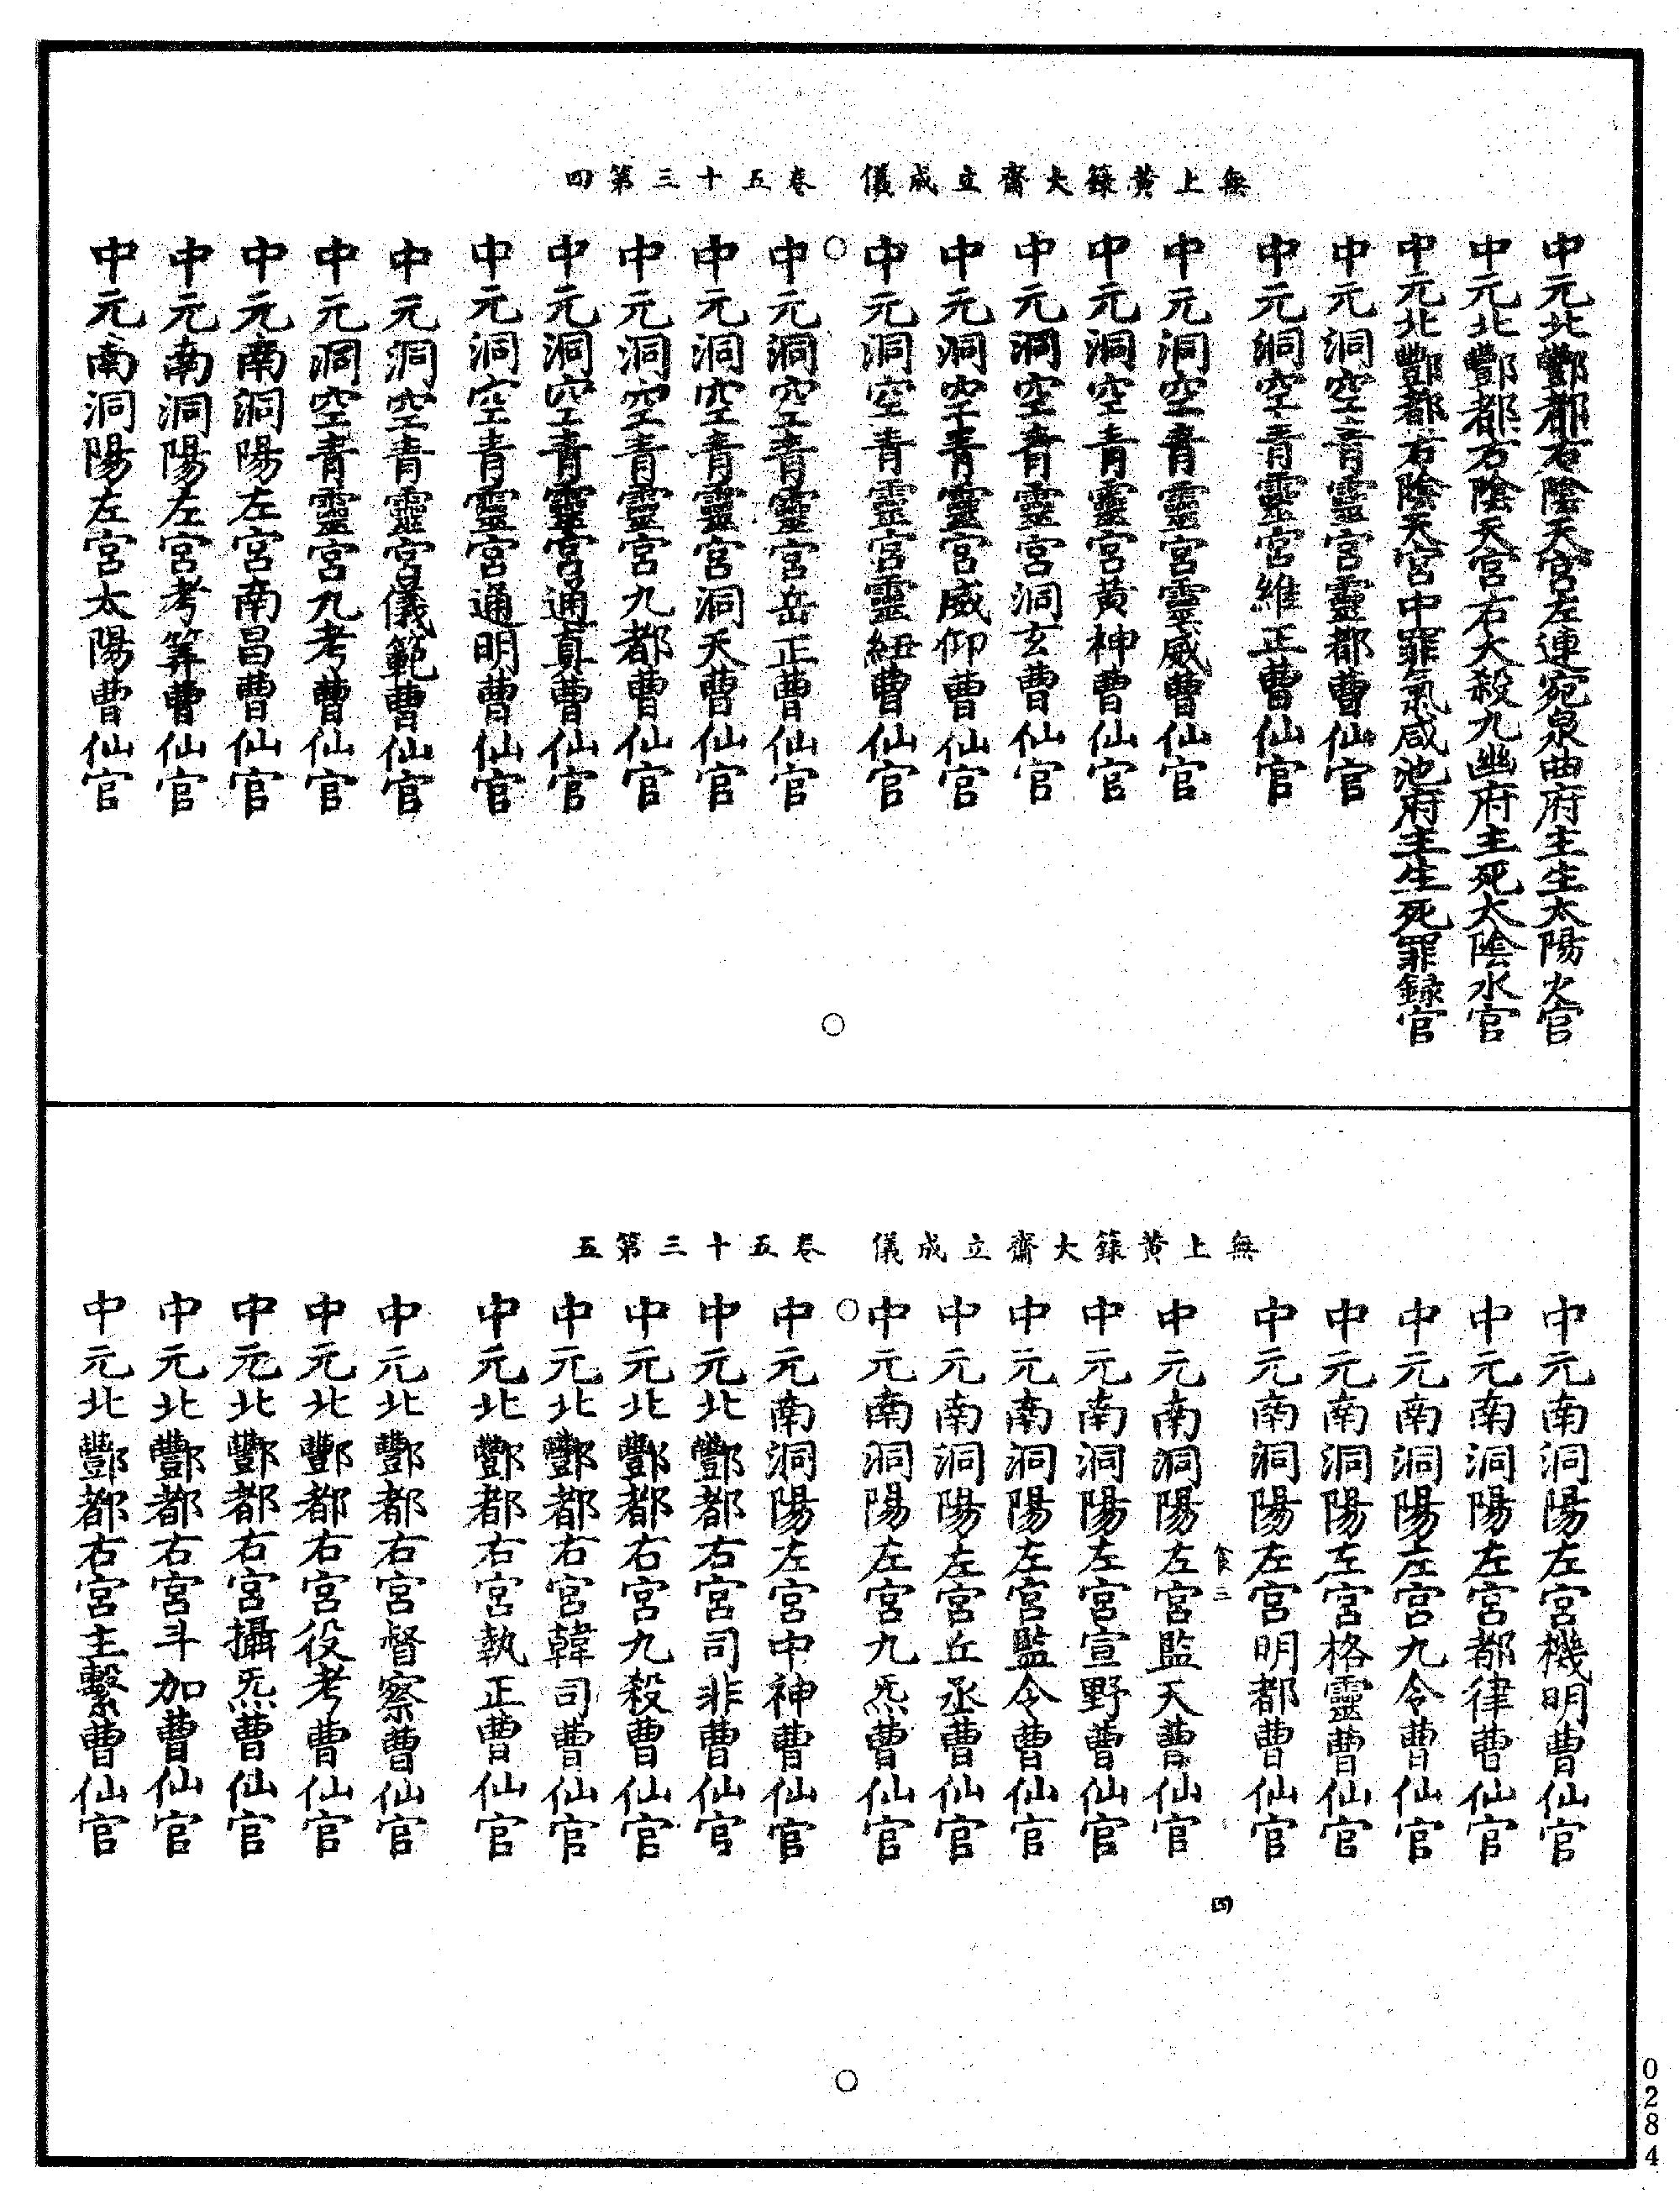 無上黃籙大齋立成儀　卷五十三第四
中元北酆都右陰天宮左連宛泉曲府主生太陽火官
中元北酆都右陰天宮右大殺九幽府主死太陰水官
中元北酆都右陰天宮中罪氣咸池府主生死罪録官
中元洞空青靈宮靈都曹仙官
中元洞空青靈宮維正曹仙官
中元洞空青靈宮靈威曹仙官
中元洞空青靈宮黃神曹仙官
中元洞空青靈宮洞玄曹仙官
中元洞空青靈宮威仰曹仙官
中元洞空青靈宮靈紐曹仙官
中元洞空青靈宮岳正曹仙官
中元洞空青靈宮洞天曹仙官
中元洞空青靈宮九都曹仙官
中元洞空青靈宮通真曹仙官
中元洞空青靈宮通明曹仙官
中元洞空青靈宮儀範曹仙官
中元洞空青靈宮九考曹仙官
中元南洞陽左宮南昌曹仙官
中元南洞陽左宮考筭曹仙官
中元南洞陽左宮太陽曹仙官
無上黃籙大齋立成儀　卷五十三第五
中元南洞陽左宮機明曹仙官
中元南洞陽左宮都律曹仙官
中元南洞陽左宮九令曹仙官
中元南洞陽左宮格靈曹仙官
中元南洞陽左宮明都曹仙官
三
四
中元南洞陽左宮監天曹仙官
中元南洞陽左宮宣野曹仙官
中元南洞陽左宮監令曹仙官
中元南洞陽左宮丘丞曹仙官
中元南洞陽左宮九炁曹仙官
中元南洞陽左宮中神曹仙官
中元北酆都右宮司非曹仙官
中元北酆都右宮九殺曹仙官
中元北酆都右宮韓司曹仙官
中元北酆都右宮執正曹仙官
中元北酆都右宮督察曹仙官
中元北酆都右宮役考曹仙官
中元北酆都右宮攝炁曹仙官
中元北酆都右宮斗加曹仙官
中元北酆都右宮主繫曹仙官
0284